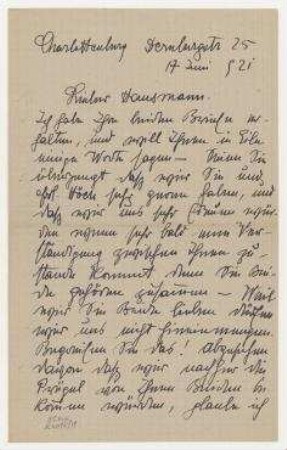 Charlottenburg Dernburgstr 25
17 Juni 921
Lieber Hausmann.
Ich habe Ihre beiden Briefe er-
halten, und will Ihnen in Eile
einige Worte sagen — Seien Sie
überzeugt daß wir Sie und
Höch sehr gerne haben, und
daß wir uns sehr freuen wür-
den wenn sehr bald eine Ver-
ständigung zwischen Ihnen zu-
stande kommt denn Sie Bei-
de gehören zusammen — Weil
wir Sie Beide lieben dürfen
wir uns nicht hineinmengen.
Begreifen Sie das! Abgesehen
davon daß wir nachher die
Prügel von Ihnen Beiden be-
kommen würden, glaube ich